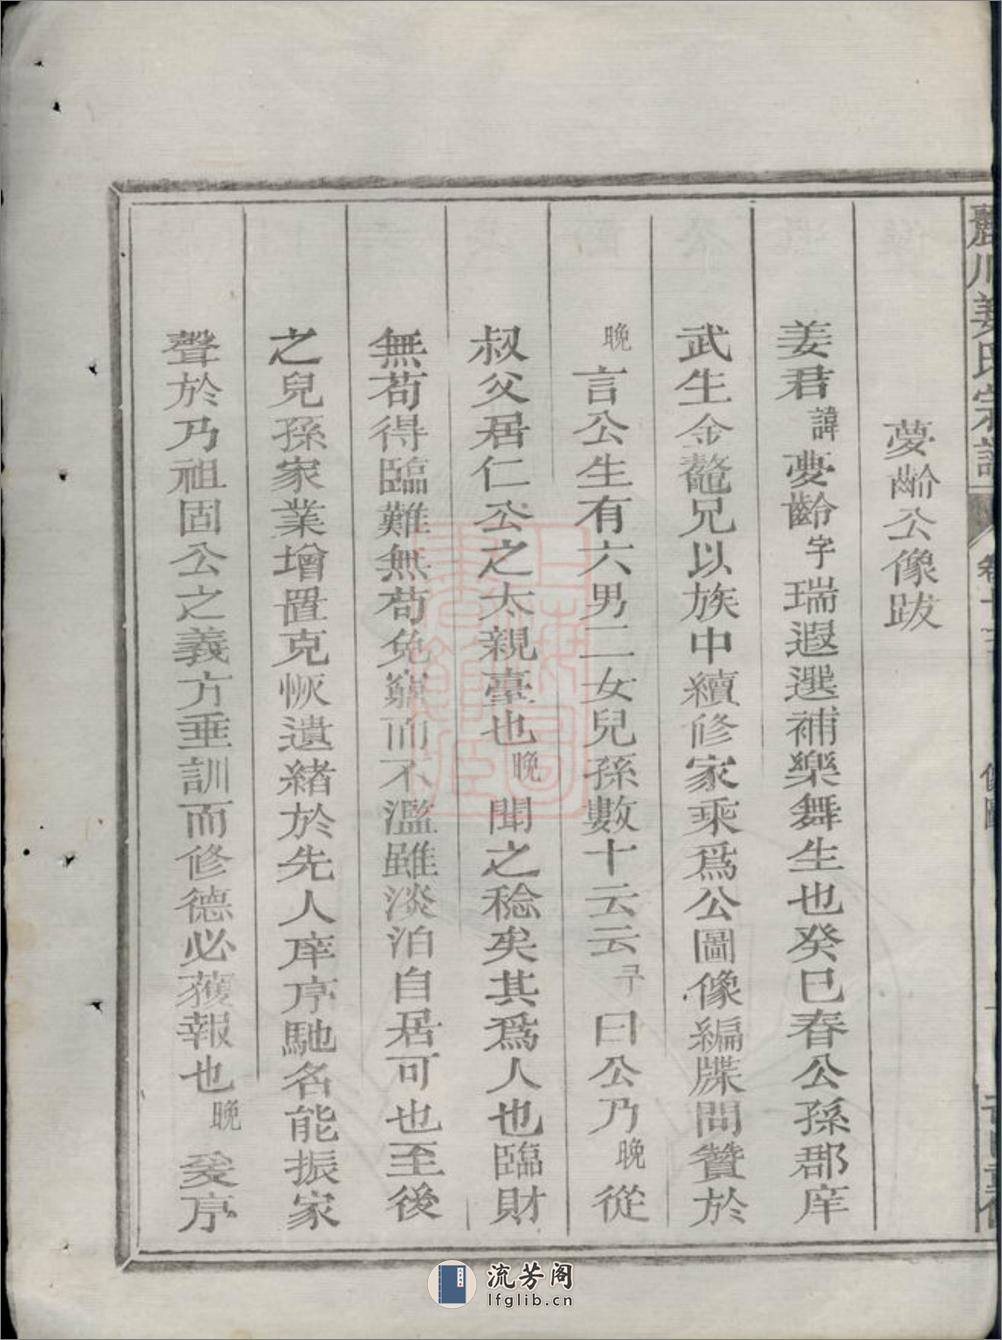 夢齡公像跋
姜君諱夢齡字瑞遐選補樂舞生也癸巳春公孫郡庠
武生金鼇兄以族中續修家乘爲公圖像編牒問贊於
晩言公生有六男二女兒孫數十云云予曰公乃晩從
叔父居仁公之太親臺也晩聞之稔矣其爲人也臨財
無苟得臨難無苟免窮而不濫雖淡泊自居可也至後
之兒孫家業增置克恢遺緒於先人庠序馳名能振家
聲於乃祖固公之義方垂訓而修德必獲報也晩爰序
姜氏宗譜
流芳阁
lfglib.cn